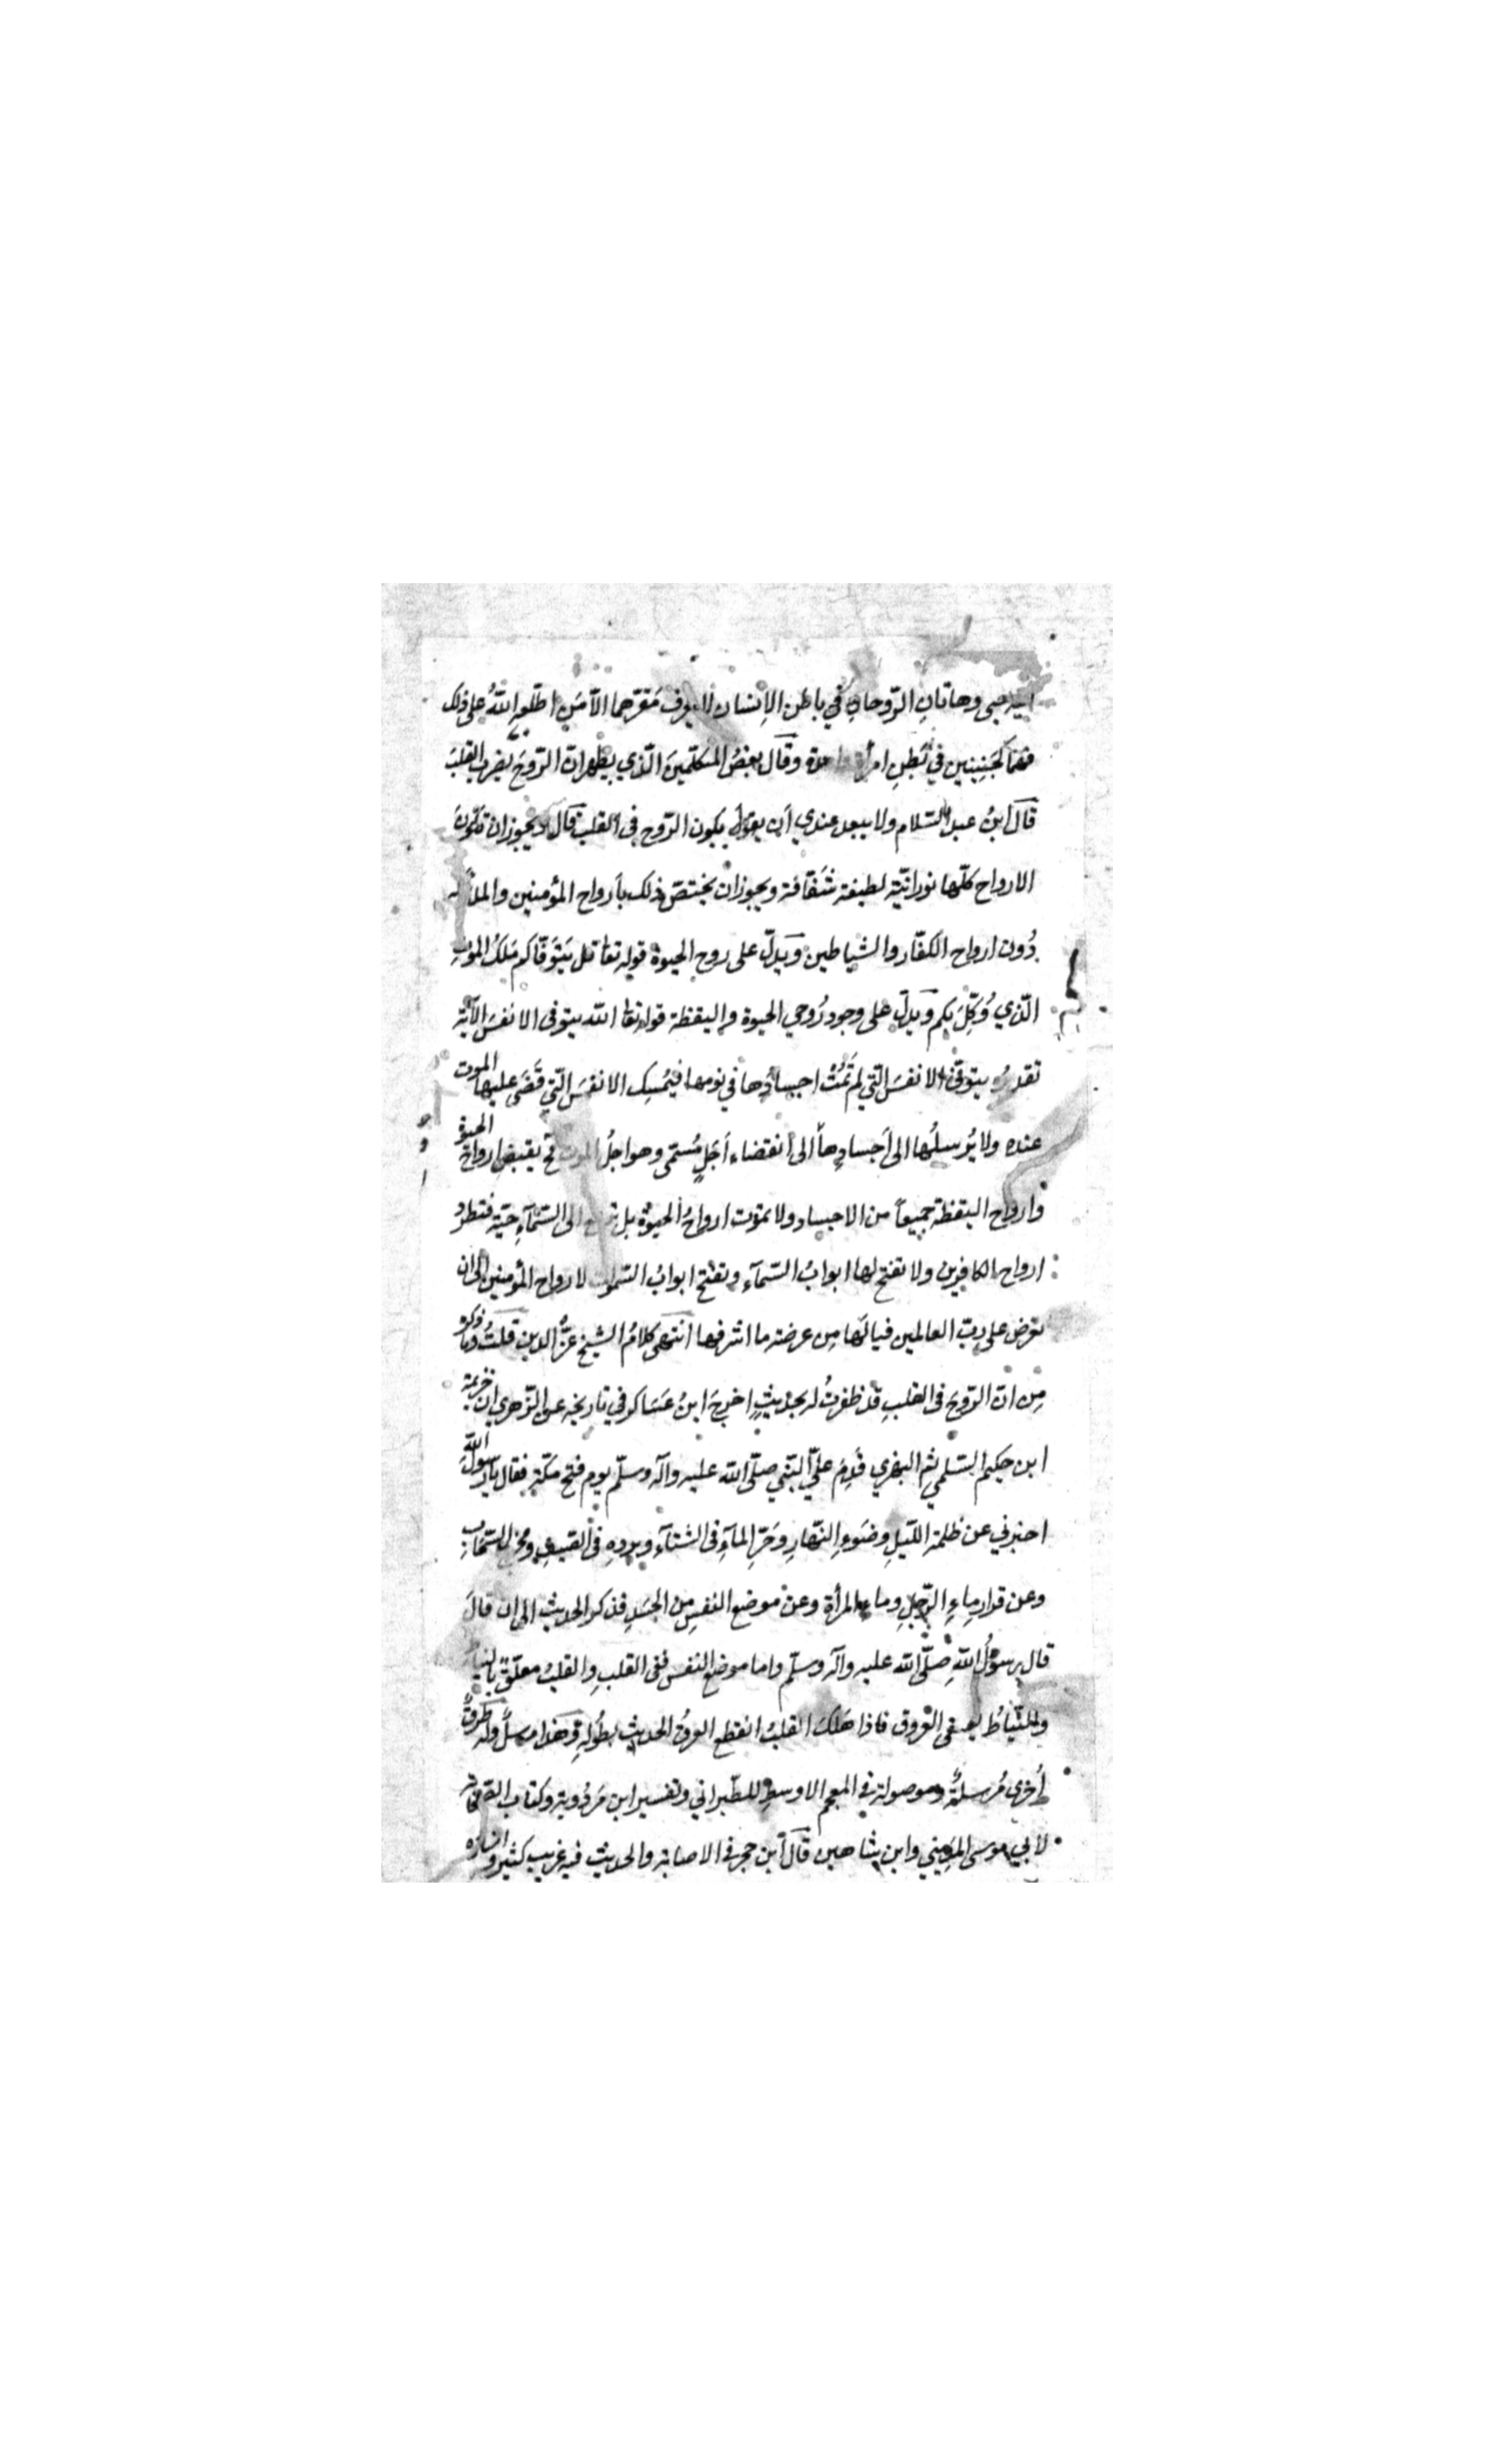 اليه حيى وهاتان الرّوحان في باطن الإنسان لا يعرف مَقرّهما الّا مَن اطّلعه اللهُ على ذلك
فهما كجَنِينين في بَطنِ امرأة واحدة وقال بعضُ المتكلّمينَ الّذي يظهر انّ الرّوحَ بقرب القلب
قال ابنُ عبد السّلام ولا يبعد عندي أن يكون الرّوح فى القلب قال ويجوز ان تكونَ
الارواح كلّها نورانيّة لطيفة شفّافة ويجوز ان يختصّ ذلك بأرواح المؤمنين والملائكة
دُون ارواح الكفّار والشياطين ويدلّ على روح الحيوة قوله تعا قل يَتَوَفّاكم مَلَكُ الموتِ
الّذي وُكِّلَ بكم ويدلّ على وجود رُوحي الحيوة واليقظة قوله تعا الله يتوفى الانفسَ الآية
تقديرُه يتوفّى الانفسَ الّتي لم تَمُتْ اجسادُها في نومها فيُمسِك الانفسَ الّتي قَضَى عليها الموت
عنده ولا يُرسلُها الى أجسادِها الى انقضاء أجَلٍ مُسمّى وهو اجلُ الموت فح يقبض ارواح الحيوة
وارواح اليقظة جميعاً من الاجساد ولا تموت ارواحُ الحيوة بل ترفع الى السّمآءِ حيّة فتطرد
ارواح الكافرين ولا تفتح لها ابوابُ السّمآء وتفتح ابوابُ السّموات لارواح المؤمنين الى ان
تعرض على ربّ العالمين فيالَها مِن عرضة ما اشرفها انتهى كلامُ الشيخ عزّ الدين قلتُ وما ذكره
مِن انّ الرّوحَ فى القلبِ قد ظفرتُ له بحديثٍ اخرجَ ابنُ عَسَاكر في تاريخه عن الزّهري ان خزيمة
ابن حكيم السّلمي ثم البهزي قَدِمَ على النّبي صلّى الله عليه وآله وسلّم يوم فتح مكّة فقال يا رسولَ الله
اخبرني عن ظلمة اللّيلِ وضَوءِ النّهارِ وحَرّ المآءِ فى الشتآءِ وبردهِ فى القيفِ ومخرج السّحَابِ
وعن قرار مِاءِ الرّجلِ وماءِ المرأة وعن موضع النفسِ مِن الجسَدِ فذكر الحديث الى ان قالَ
قال رسولُ اللهِ صلّى الله عليه وآله وسلّم واما موضع النفس ففى القلبِ والقلبُ معلّق بالنياط
والنّياطُ يسقى العروق فاذا هَلكَ القلبُ انقطع العرقُ الحديث بطُولِهِ وهذا مرسلٌ وله طرقٌ
أُخرى مُرسلةٌ وموصولة في المعجم الاوسطِ للطّبراني وتفسير ابن مَردُوية وكتاب الصّحابة
لابي موسى المَدِيني وابن شاهين قال ابن حجر في الاصابة والحديث فيه غريب كثير واسناده